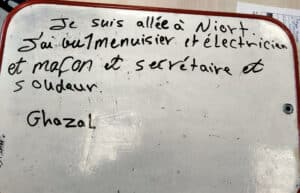 Je suis allée à Niort
J'ai vu 1 menuisier et électricien
et maçon et secrétaire et
soudeur.
Ghazal